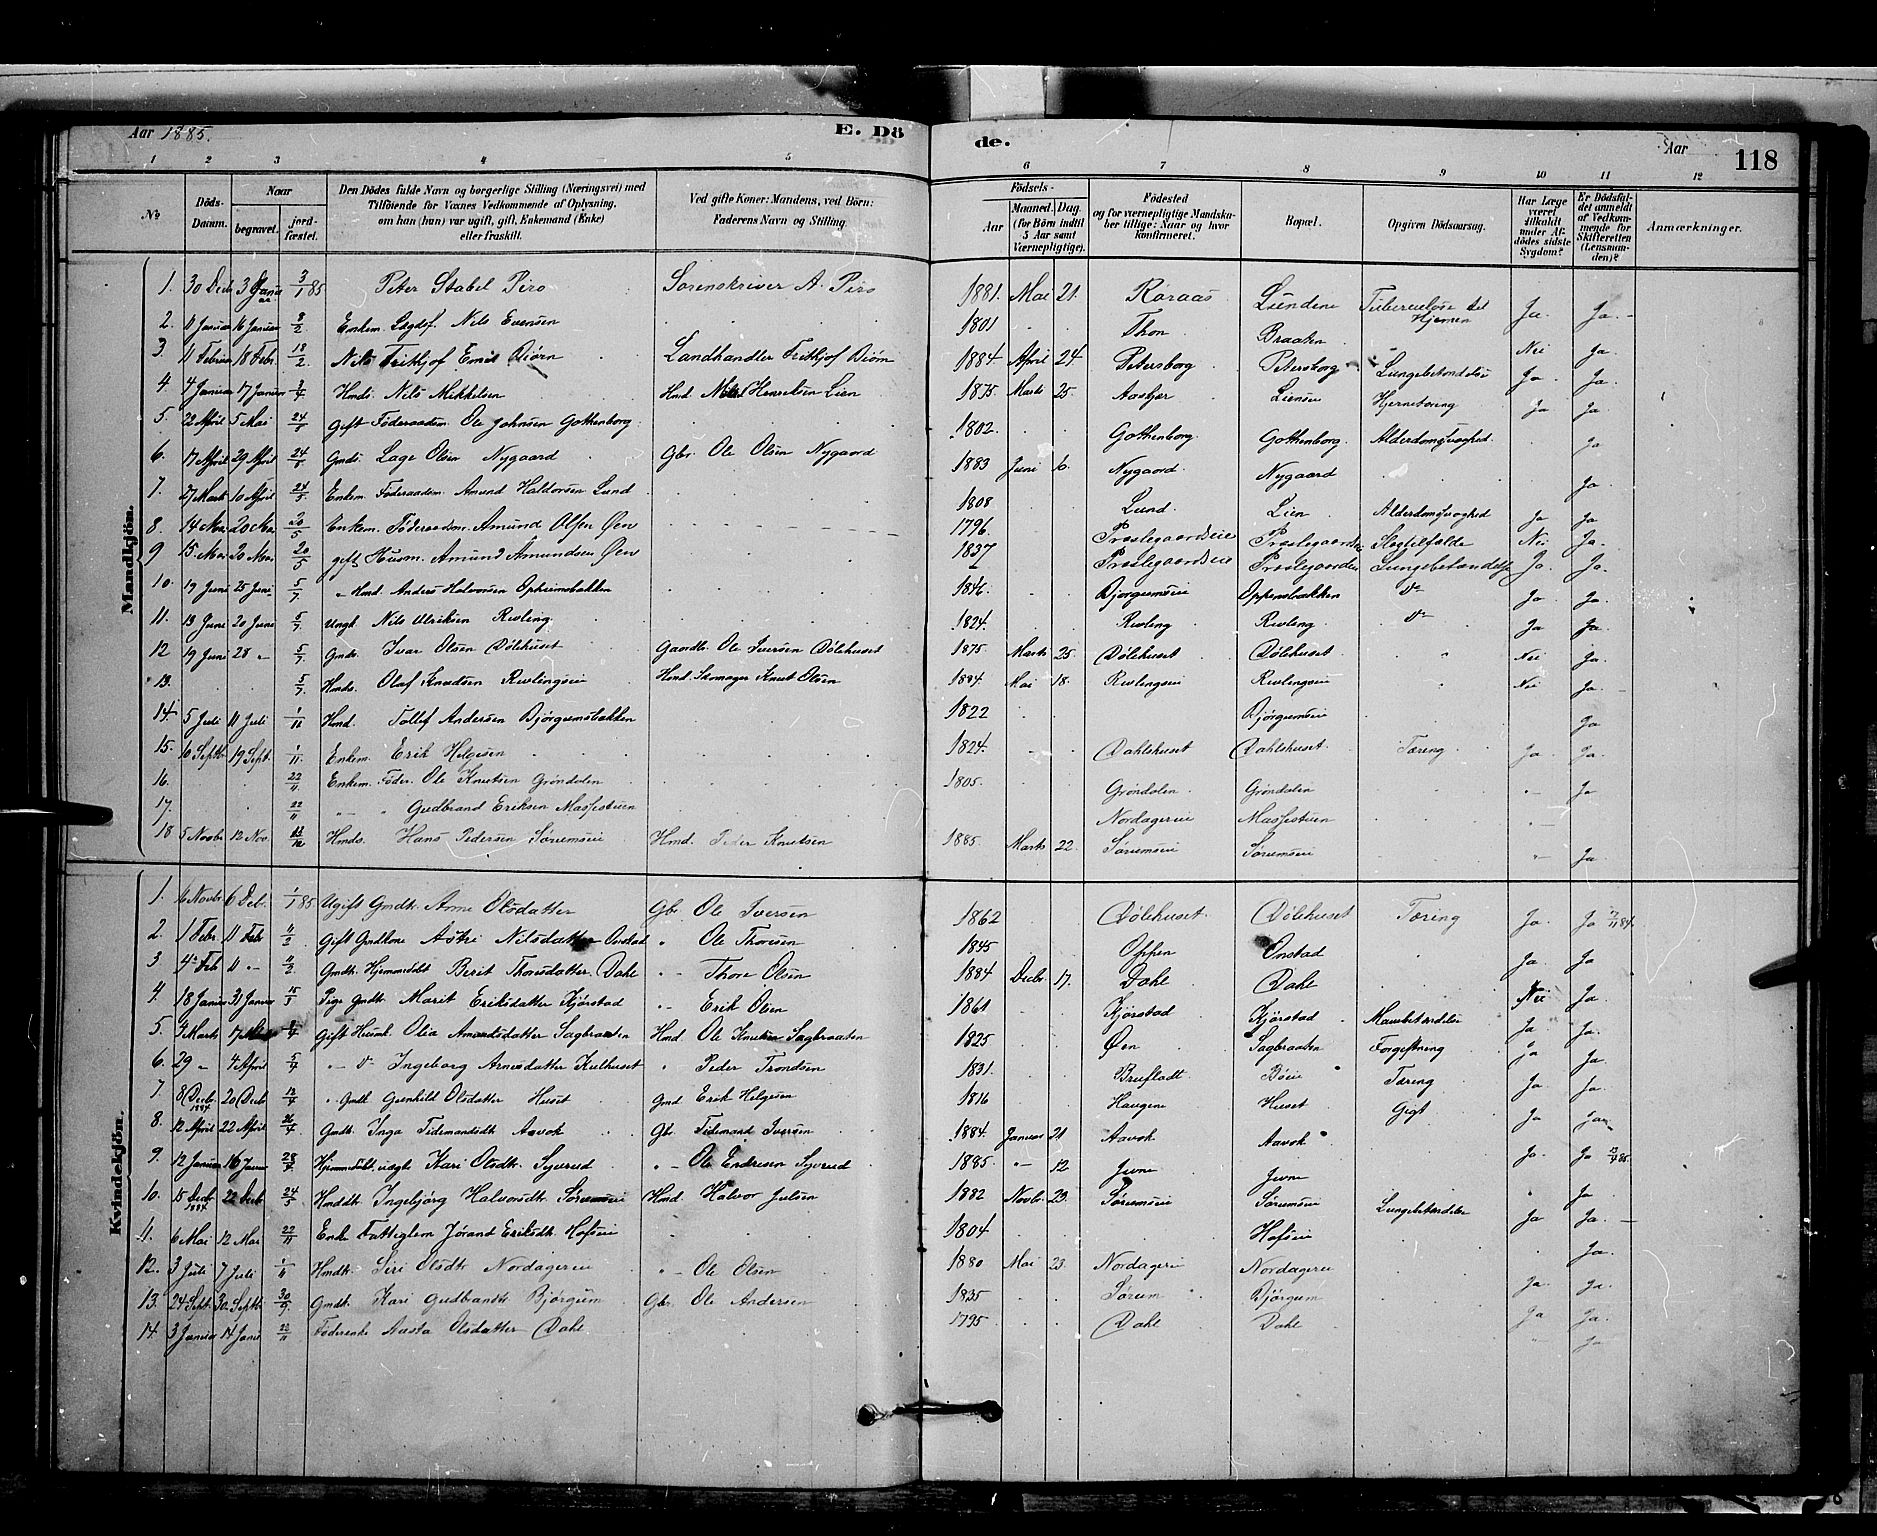 Aar 1885.
E. Dö
de.
Aar
118
1 2 3 4 5 6 7 8 9 10 11 12
No
Döds-Datum.
Naar
begravet.
jord-fæstet.
Den Dödes fulde Navn og borgerlige Stilling (Næringsvei) med
Tilföiende for Voxnes Vedkommende af Oplysning,
om han (hun) var ugift, gift, Enkemand (Enke)
eller fraskilt.
Ved gifte Koner: Mandens, ved Börn:
Faderens Navn og Stilling.
Födsels-
Aar
Maaned. Dag.
(for Börn indtil
5 Aar samt
Værnepligtige).
Födested
og for værnepligtige Mandska-
ber tillige: Naar og hvor
konfirmeret.
Bopæl.
Opgiven Dödsaarsag.
Har Læge
været
tilkaldt
under Af-
dödes sidste
Sygdom?
Er Dödsfal-
det anmeldt
af Vedkom-
mende for
Skifteretten
(Lensman-
den)?
Anmærkninger.
Mandkjön.
1. 30 Decb 3 Januar 3/1 85 Peter Stabel Piro Sorenskriver A. Piro 1881. Mai 21. Röraas Lundene Tuberculose Hjernen Ja. Ja.
2. 11 Januar 16 Januar 8/2 Enkem. Lægdsf. Nils Evensen 1801 Thon Braaten Nei Ja
3. 11 Februar 18 Febr. 18/2 Nils Frithjof Emil Biörn Landhandler Frithjof Biörn 1884 April 24 Petersborg Petersborg Lungebetændelse Ja Ja.
4. 4 Januar 17 Januar Hmds. Nils Mikkelsen Hmd Henriksen Lien 1875 Marts 25. Aaskjer Liensei Hjernetæring Ja Ja
5. 22 April 5 Mai 24/5 gift Föderaadsm. Ole Johnsen Gothenborg 1802. Gothenborg. Gothenborg. Alderdomsvaghed. Ja
6. 17 April 29 April 24/5 Gmds. Lage Olsen Nygaard Gbr. Ole Olsen Nygaard 1883 Juni 6. Nygaard. Nygaard Ja.
7. 27 Marts 10 April 24/5 Enkem. Föderaadsm. Amund Haldorsen Lund 1808 Lund. Lien Alderdomsvaghed Ja Ja
8. 14 Mai 20 Mai 20/5 Enkem. Föderaadsm. Amund Olsen Öen 1796. Præstegaardseie Præstegaardsei Slagtilfælde Nei Ja.
9 15 Mai 20 Mai 20/5 gift Husm. Amund Amundsen Öen 1837 Præstegaardseie Præstegaardsei Lungebetændelse Ja. Ja.
10. 19 Juni 25 Juni 5/7 " Hmd. Anders Halvorsen Opheimsbakken 1846. Björgumseie Oppensbakken do Ja Ja.
11. 13 Juni 20 Juni 5/7 Ungk. Nils Ulriksen Revling 1824. Revling Revling. do Ja Ja.
12 19 Juni 28 " 5/7 Gmds. Ivar Olsen Dölehuset Gaardbr. Ole Iversen Dölehuset 1875 Marts 25. Dölehuset Dölehuset. " Nei Ja
13. 5/7 Hmds. Olaf Knudsen Revlingseie Hmd. Skomager Knut Olsen 1884. Mai 18. Revlingseie Revlingseie " Nei Ja.
14. 5 Juli 11 Juli 1/11 Hmd. Tollef Andersen Björgumsbakken 1822 Björgumseie Ja
15. 10 Septbr. 19 Sept. 1/11 Enkem. Erik Helgesen 1824. Dahlehuset Dahlehuset. Tæring. Ja Ja.
16. 22/11 Enkem. Föder. Ole Knutsen Gröndalen 1805. Gröndalen. Gröndalen " Ja
17 22/11 " " Gudbrand Eriksen Massesteien Nordagereie Massesteien "
18 5 Novbr 12 Nov. Hmds. Hans Pedersen Sörumseie Hmd. Peder Knutsen 1885. Marts 22. Sörumseie Sörumseie " Ja.
Kvindekjön.
1. 6 Novbr 6 Decb. 1/1 85 Ugift Gmdt. Anne Olsdatter Gbr Ole Iversen 1862 Dölehuset. Dölehuset Tæring Ja. Ja 7/11 84.
2. 1 Febr 11 Febr 11/2 Gift Gmdkone Astri Nilsdatter Onstad " Ole Thoresen 1845 Oppen Onstad Ja Ja
3 4 Feb 11 " 11/2 Gmdt. Hjemmedöbt Berit Thoresdatter Dahl " Thore Olsen 1884 Decbr 17. Dahl Dahl Nei Ja
4. 18 Januar 31 Januar 15/3 Pige Gmdt. Marit Eriksdatter Kjörstad " Erik Olsen 1861 Kjörstad Kjörstad Mavebetændelse Ja. Ja.
5. 9 Marts 17 Gift Husmk. Olia Amundsdatter Sagbraaten Hmd Ole Knutsen Sagbraaten 1825 Öen Sagbraaten Forgiftning Ja Ja
6. 29 " 4 April 5/4 " do Ingeborg Arnesdatter Kulhuset " Peder Trondsen 1831. Brufladt Böeie Tæring Ja Ja.
7 8 Decb. 1884 20 Decb 12/4 " Gmdk Gunhild Olsdatter Huset Gmd Erik Helgesen 1816 Haugene Huset Gigt Ja Ja
8. 12 April 22 April 26/4 Gmdt. Inga Tidemandsdt. Aavok Gbr. Tidemand Iversen 1884. Januar 21 Aavok Aavok Ja. Ja
9. 12 Januar 16 Janu Hjemmedöbt, uægte Kari Olsdt. Syverud " Ole Endresen Syverud 1885. " 12. Jevne Jevne " Ja
10. 15 Decbr 1884 22 Decb 24/5 Hmddt. Ingebjörg Halvorsdt. Sörumseie Hmd. Halvor Julsen 1882 Novbr. 23. Sörumseie Sörumseie Lungebetændelse Ja Ja.
11. 6 Mai 12 Mai 22/11 Enke Fattiglem Jörand Eriksdt. Hofseie 1804 Hofseie Ja.
12. 3 Juli 7 Juli 1/11 Hmdt. Siri Olsdt. Nordagereie " Ole Olsen 1880 Mai 23. Nordagerei Nordagereie Ja. Ja.
13. 24 Sept. 30 Septbr 30/9 Gmdk. Kari Gudbrandsdt. Björgum Gbr. Ole Andersen 1835 Sörum Björgum Ja Ja.
14. 3 Januar 14 Janu 22/11 Föderenke Aasta Olsdatter Dahl 1795 Dahl Dahl " Ja